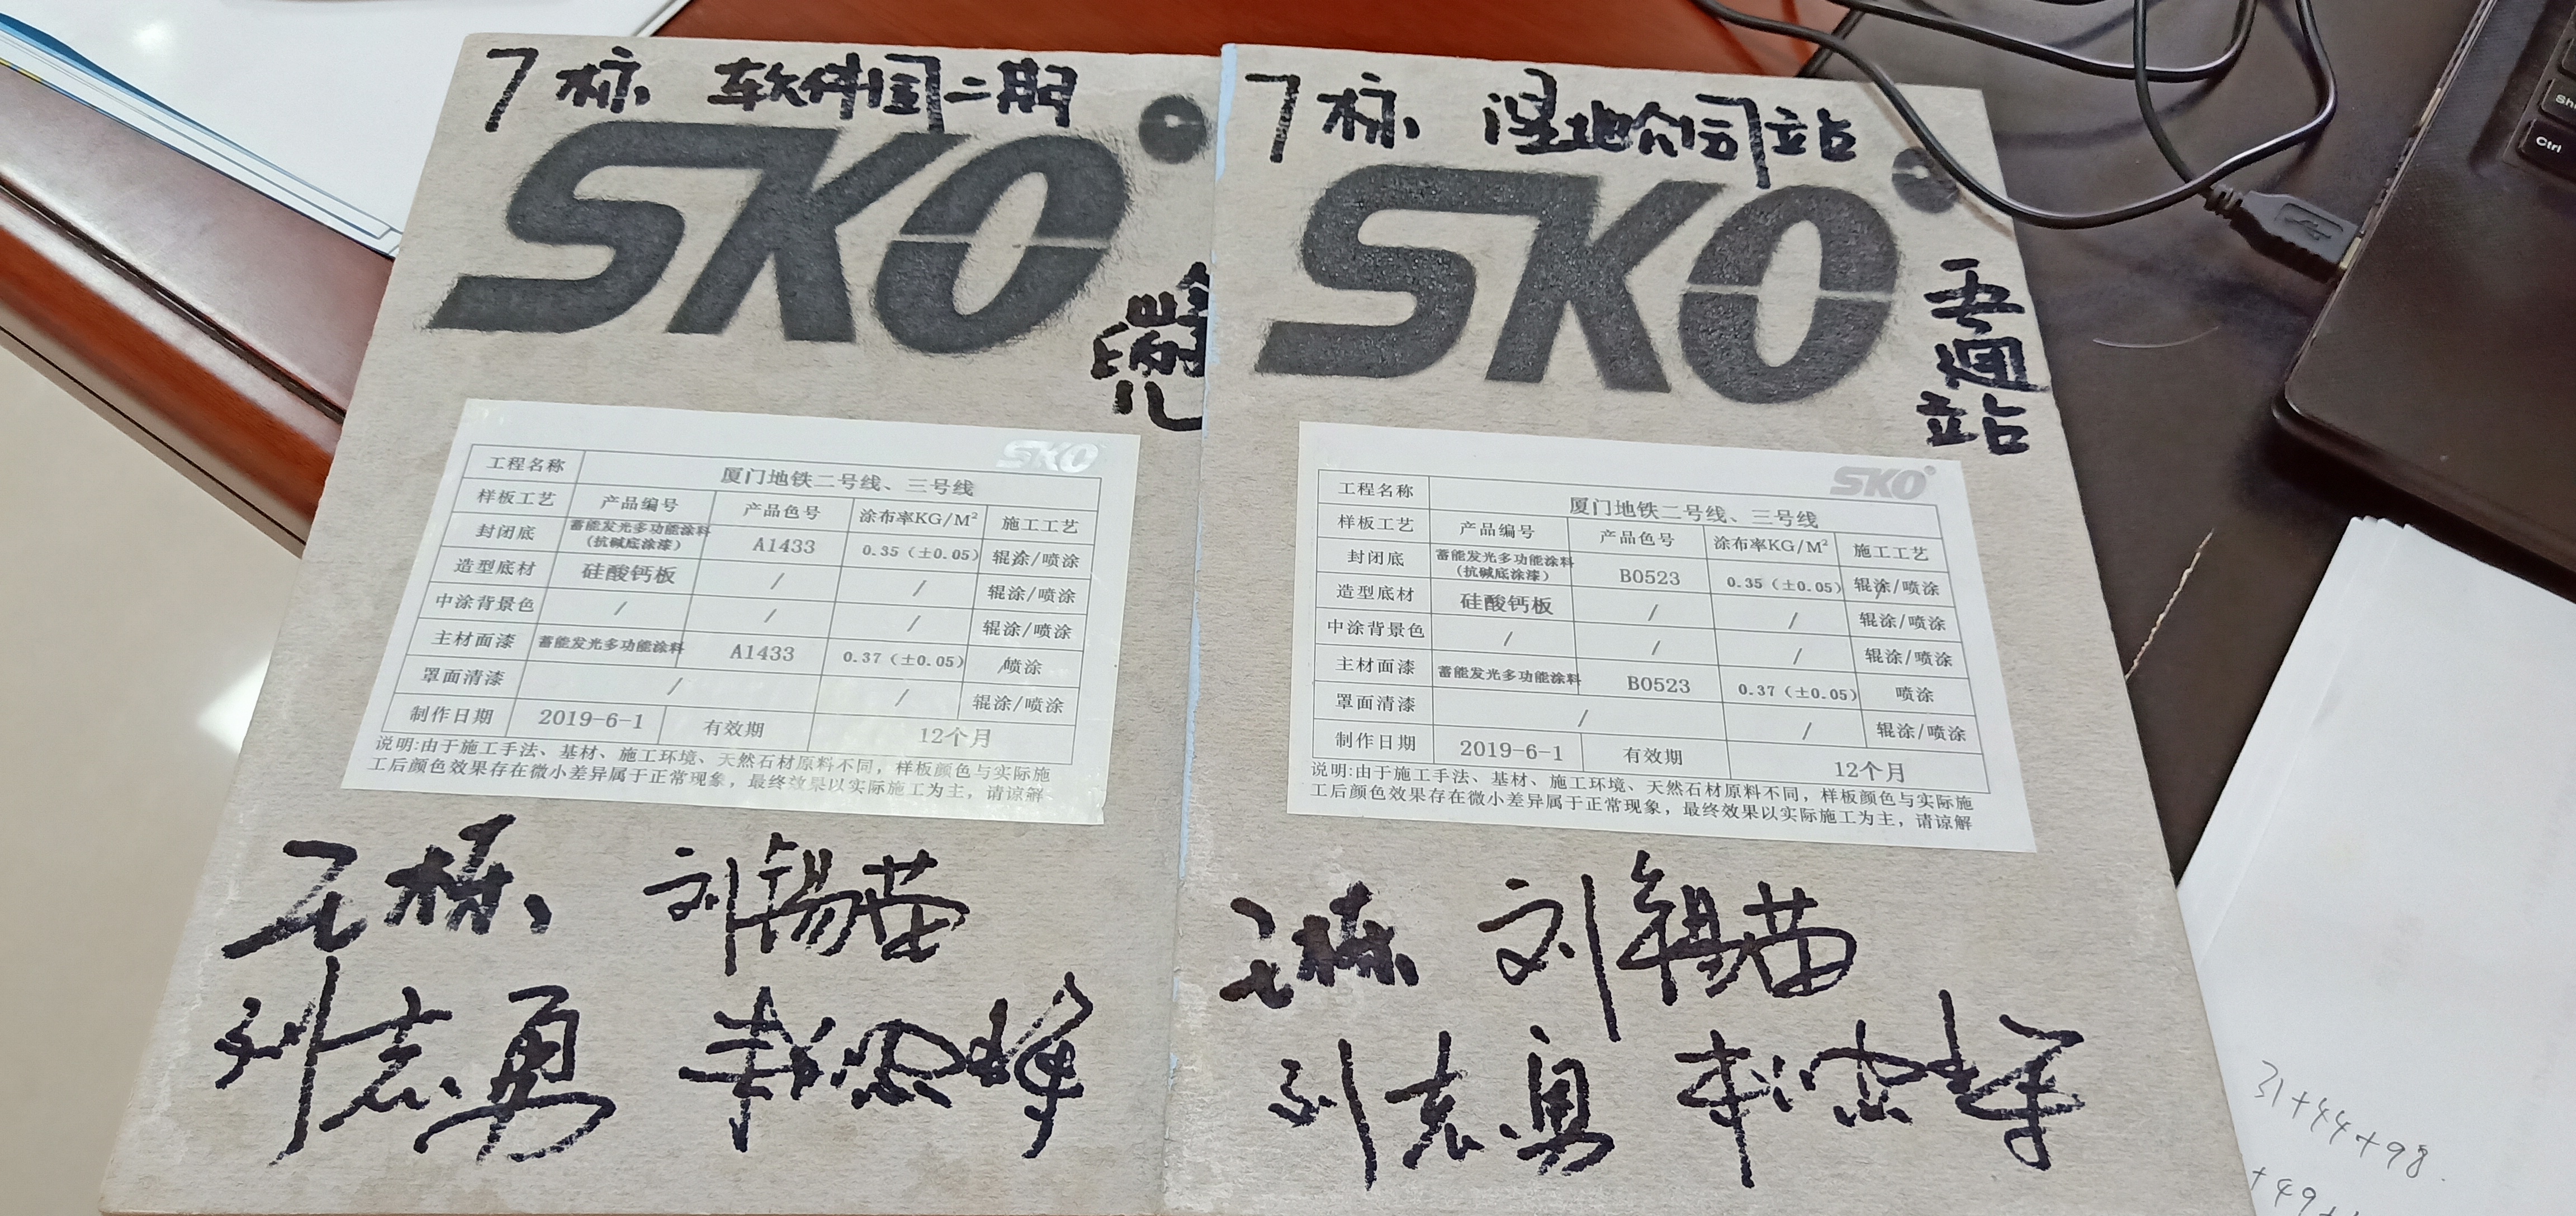 7标 软件园二期
SKO
SKO
工程名称 厦门地铁二号线、三号线
样板工艺 产品编号 产品色号 涂布率KG/M² 施工工艺
封闭底 蓄能发光多功能涂料(抗碱底涂漆) A1433 0.35（±0.05） 辊涂/喷涂
造型底材 硅酸钙板 / / 辊涂/喷涂
中涂背景色 / / / 辊涂/喷涂
主材面漆 蓄能发光多功能涂料 A1433 0.37（±0.05） /喷涂
罩面清漆 / / 辊涂/喷涂
制作日期 2019-6-1 有效期 12个月
说明:由于施工手法、基材、施工环境、天然石材原料不同，样板颜色与实际施
工后颜色效果存在微小差异属于正常现象，最终效果以实际施工为主，请谅解
七标、 刘锡苗
刘志勇
7标 湿地公园站
SKO
五通
站
SKO
工程名称 厦门地铁二号线、三号线
样板工艺 产品编号 产品色号 涂布率KG/M² 施工工艺
封闭底 蓄能发光多功能涂料(抗碱底涂漆) B0523 0.35（±0.05） 辊涂/喷涂
造型底材 硅酸钙板 / / 辊涂/喷涂
中涂背景色 / / / 辊涂/喷涂
主材面漆 蓄能发光多功能涂料 B0523 0.37（±0.05） 喷涂
罩面清漆 / / 辊涂/喷涂
制作日期 2019-6-1 有效期 12个月
说明:由于施工手法、基材、施工环境、天然石材原料不同，样板颜色与实际施
工后颜色效果存在微小差异属于正常现象，最终效果以实际施工为主，请谅解
七标、 刘锡苗
刘志勇
Ctrl
31+44+98
+49+